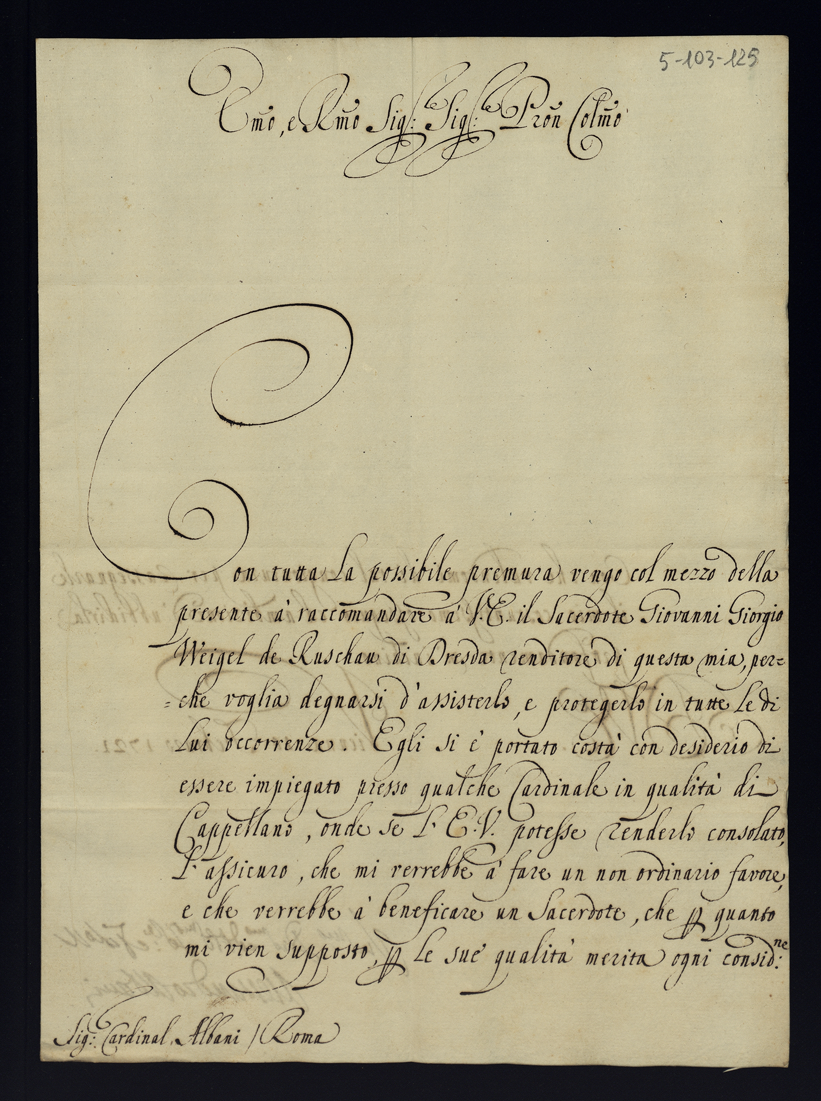 5-103-125
Emo, e Rmo Sigre: Sigre: Pron Colmo
Con tutta La possibile premura vengo col mezzo della
presente à raccomandare à V.E. il Sacerdote Giovanni Giorgio
Weigel de Ruschau di Dresda renditore di questa mia, per=
=che voglia degnarsi d'assisterlo, e protegerlo in tutte Le di
Lui occorrenze. Egli si è portato costà con desiderio di
essere impiegato presso qualche Cardinale in qualità di
Cappellano, onde se L'E.V. potesse renderlo consolato,
L'assicuro, che mi verrebbe à fare un non ordinario favore,
e che verrebbe à beneficare un Sacerdote, che ꝑ quanto
mi vien supposto, ꝑ Le sue qualità merita ogni considne:
Sigr: Cardinal. Albani / Roma
1721.